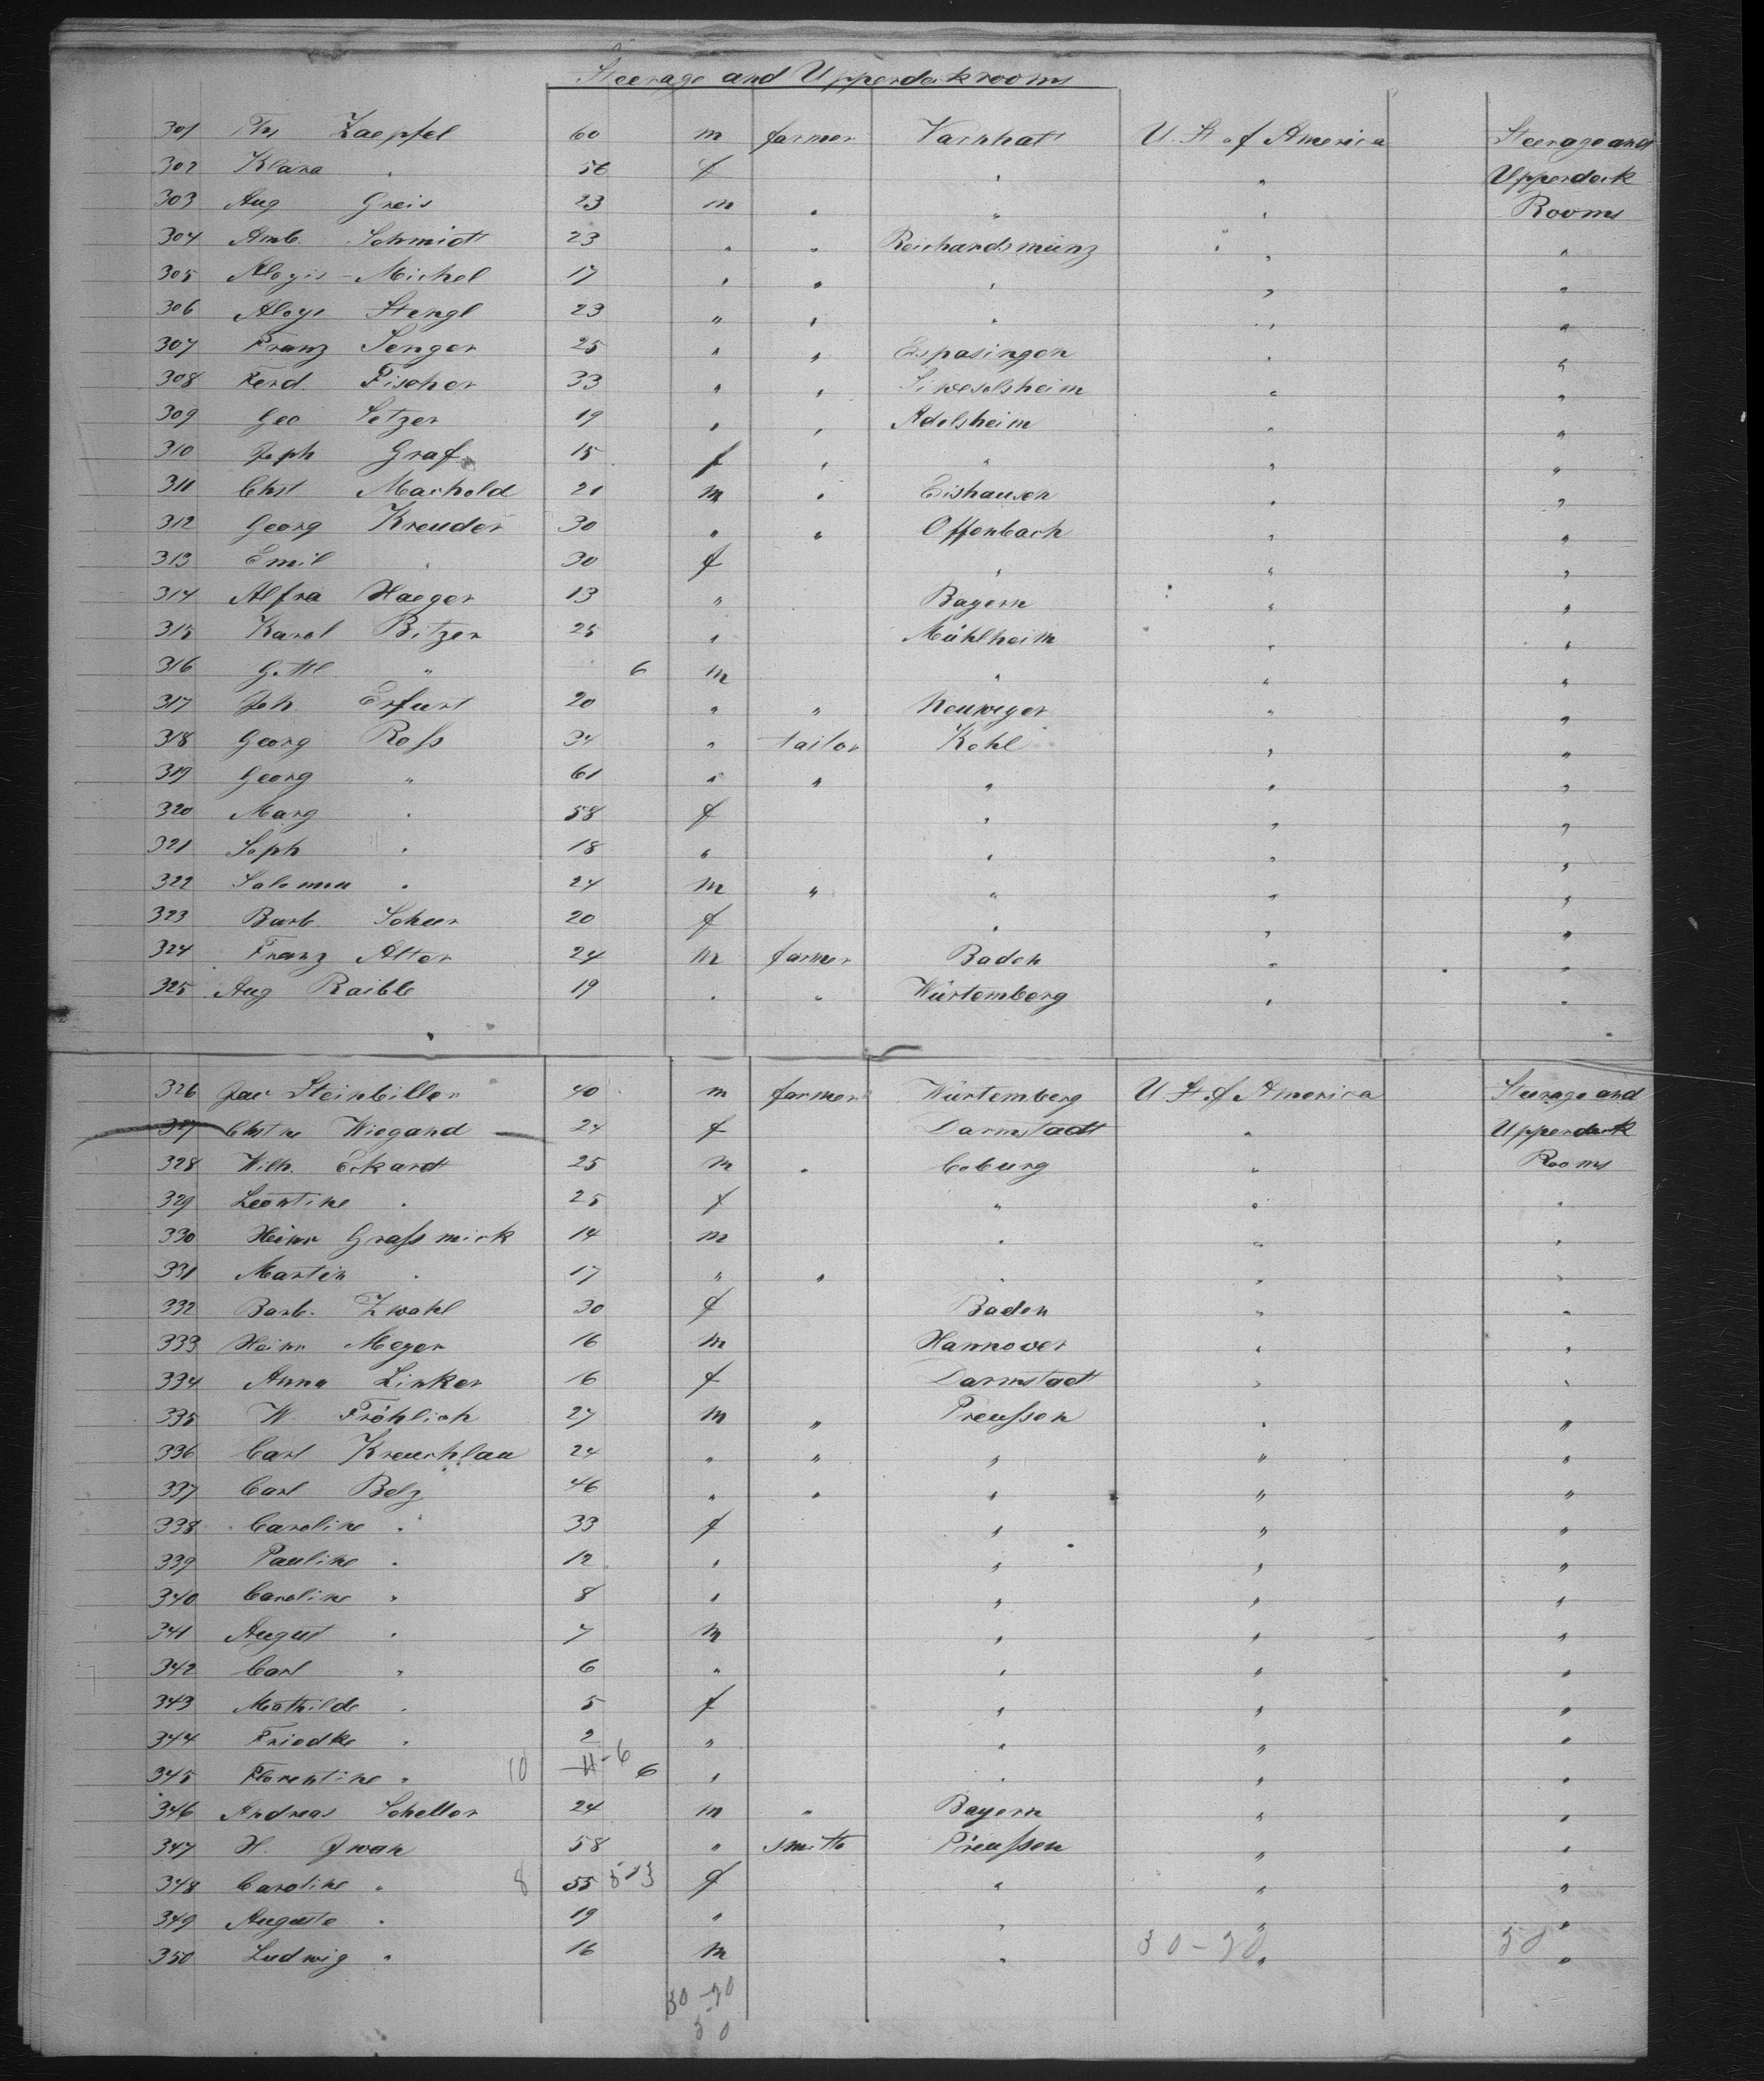 Steerage and Upperdeck rooms
301 Zaepfel 60 m farmer Varnhalt U. St. of America Steerage and
302 Klara " 56 f " " Upperdeck
303 Aug Greis 23 m " " " Rooms
304 Amb. Schmidt 23 " " Reichardsmünz " "
305 Aloys Michel 17 " " " " "
306 Aloys Stengl 23 " " " " "
307 Franz Senger 25 " " Espasingen " "
308 Ferd. Fischer 33 " " " "
309 Geo Setzer 19 " " Adelsheim " "
310 Jeph Graf 15 f " " " "
311 Chst Machold 21 m " Eishausen " "
312 Georg Kreuder 30 " " Offenbach " "
313 Emil " 30 f " " "
314 Alfra Haeger 13 " Bayern " "
315 Karol Bitzer 25 " Mühlheim " "
316 Gottl " 6 m " " "
317 Joh. Erfurt 20 " " Neuweyer " "
318 Georg Roſs 34 " tailor Kehl " "
319 Georg " 61 " " " " "
320 Marg " 58 f " " "
321 Soph " 18 " " " "
322 Salomon " 24 m " " " "
323 Barb. Scheer 20 f " " "
324 Franz Alter 24 m farmer Baden " "
325 Aug Raible 19 " " Würtemberg " "
326 Jac Steinbiller 40 m farmer Würtemberg U. St. of America Steerage and
327 Chstne Wiegand 24 f Darmstadt " Upperdeck
328 Wilh. Eckardt 25 m " Coburg " Rooms
329 Leontine " 25 f " " "
330 Heinr Graſsmick 14 m " " "
331 Martin " 17 " " " " "
332 Barb. Zwahl 30 f Baden " "
333 Heinr Meyer 16 m Hannover " "
334 Anna Linker 16 f Darmstadt " "
335 W. Fröhlich 27 m " Preuſsen " "
336 Carl Kreuchlau 24 " " " " "
337 Carl Belz 46 " " " " "
338 Caroline " 33 f " " "
339 Pauline " 12 " " " "
340 Caroline " 8 " " " "
341 August " 7 m " " "
342 Carl " 6 " " " "
343 Mathilde " 5 f " " "
344 Friedke " 2 " " " "
345 Florentine " 10 11-6 6 " " " "
346 Andreas Scheller 24 m " Bayern " "
347 H. Iwan 58 " smith Preuſsen " "
348 Caroline " 8 55 f " " "
349 Auguste " 19 " " " "
350 Ludwig " 16 m " 30-20 " 50 "
30-20
50